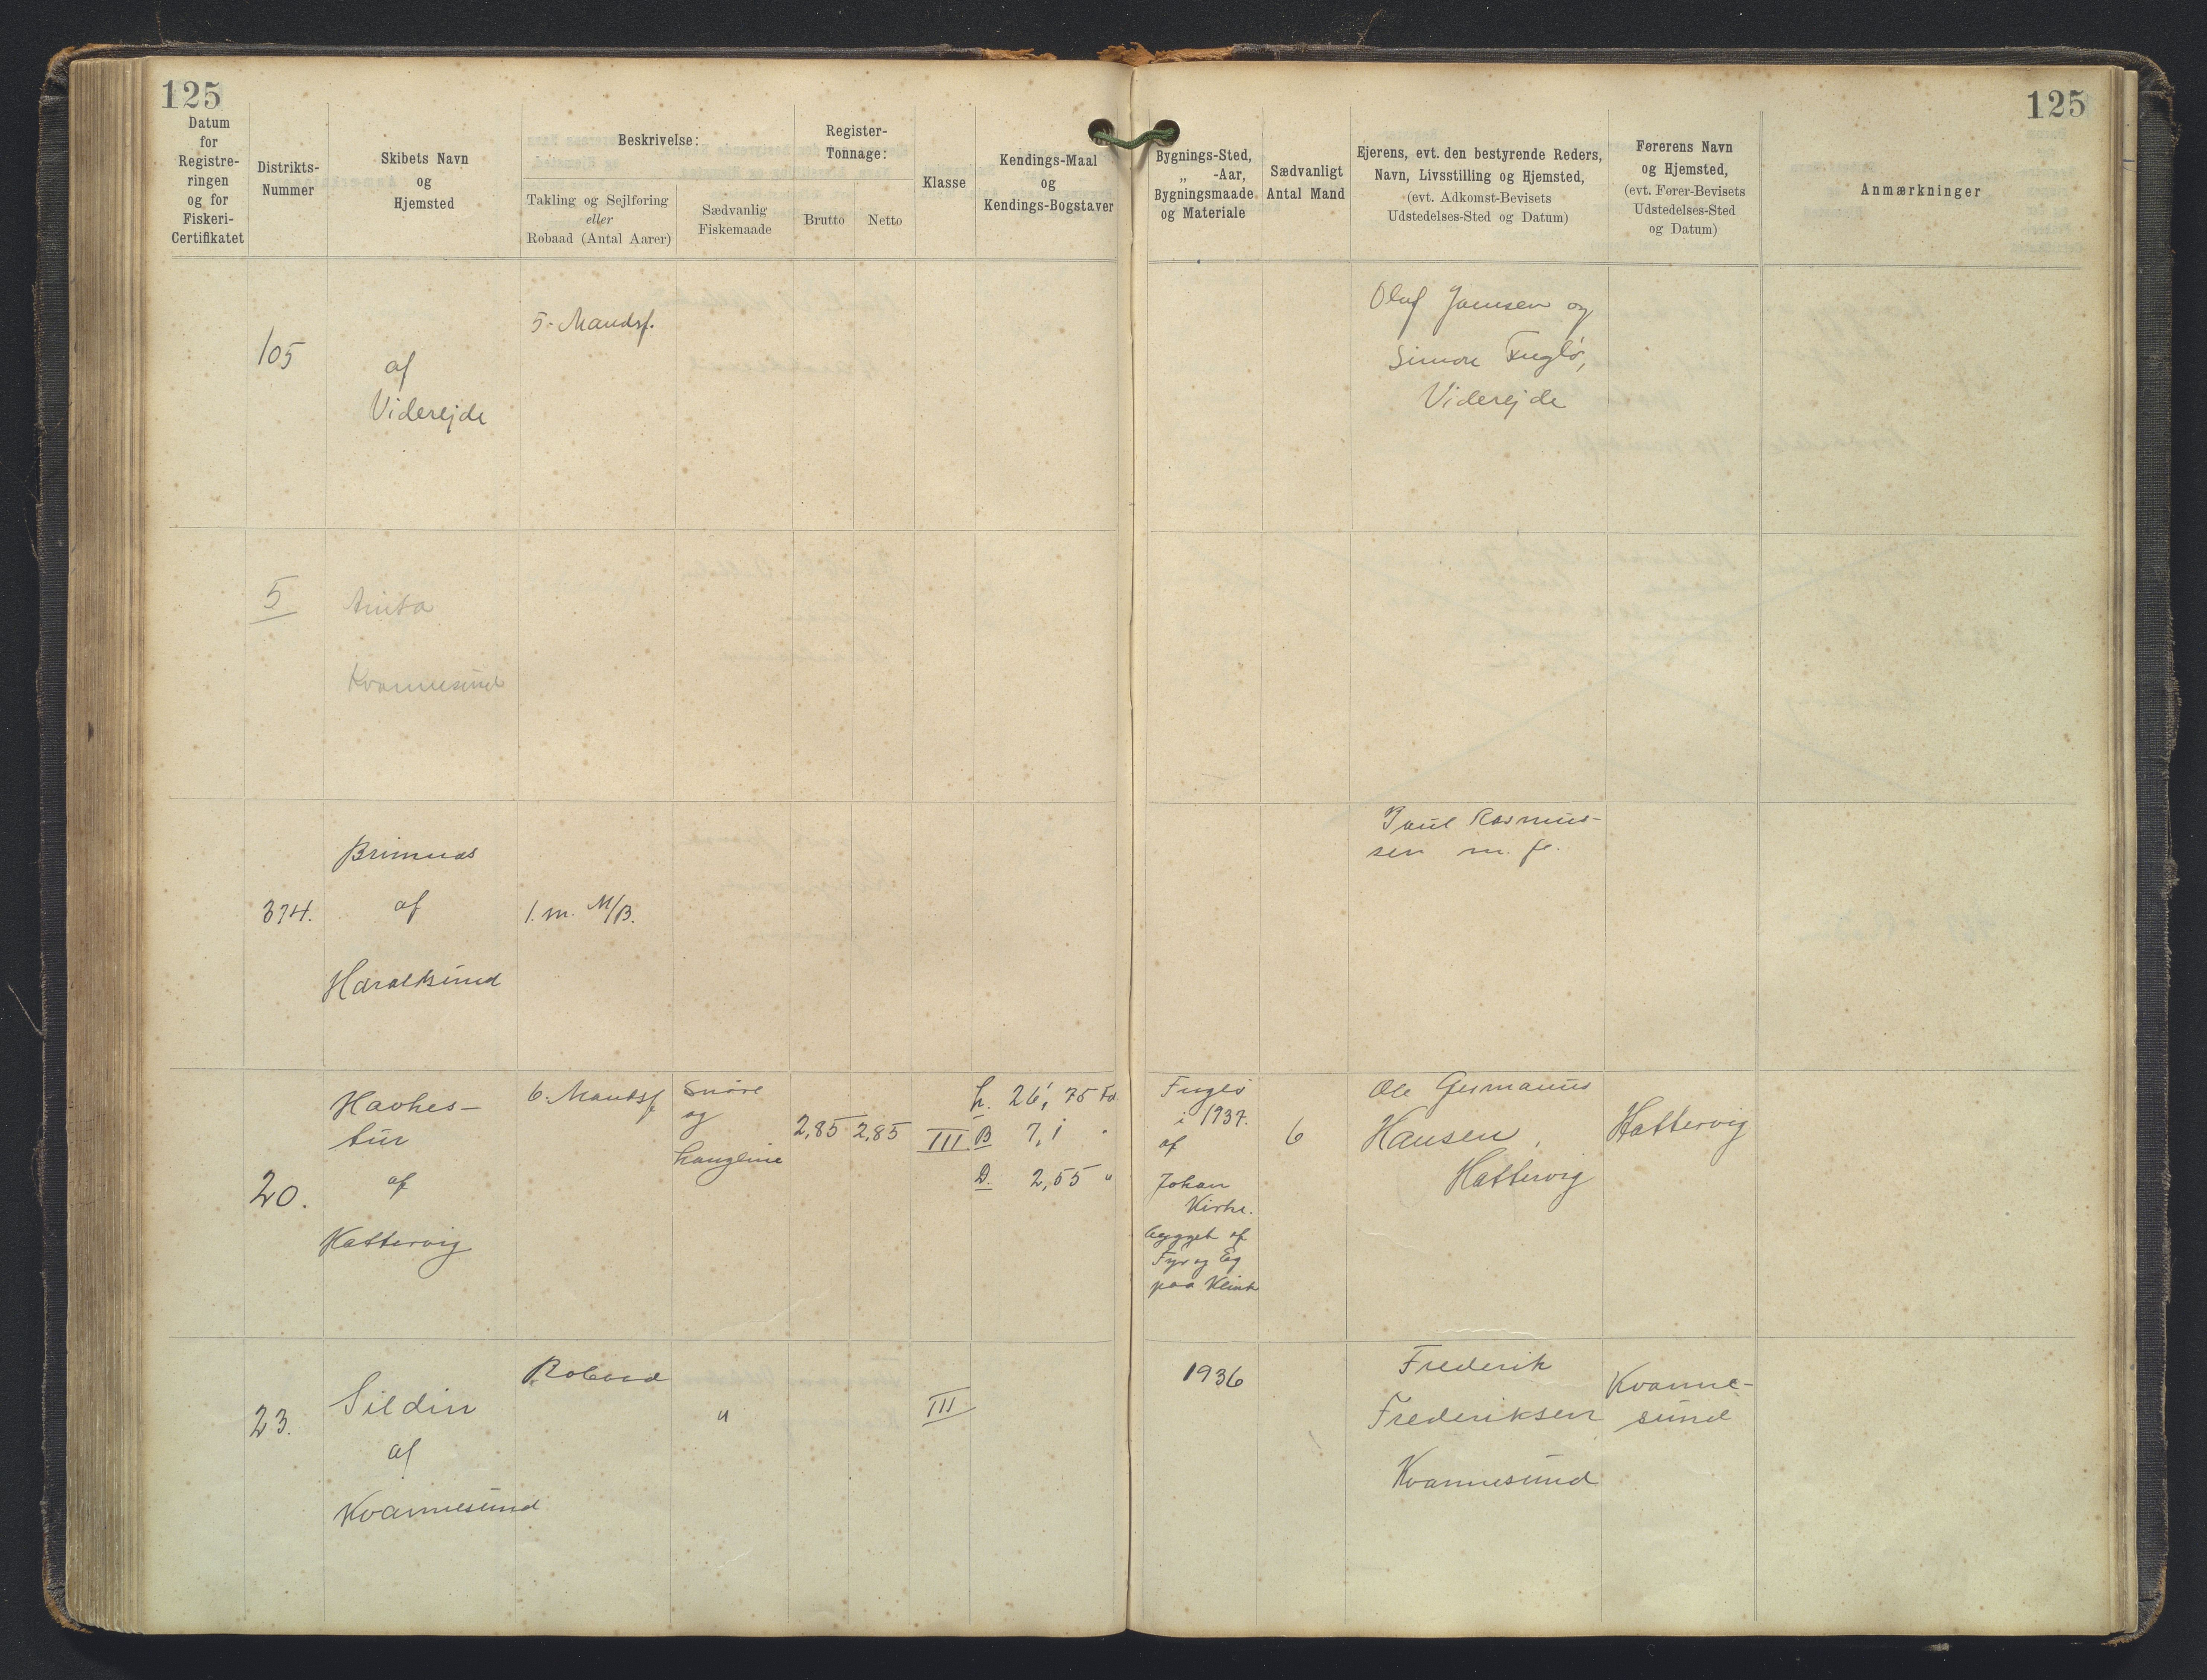 125
125
Datum
for
Registre-
ringen
og for
Fiskeri-
Certifikatet
Distrikts-
Nummer
Skibets Navn
og
Hjemsted
Beskrivelse:
Takling og Sejlføring
eller
Robaad (Antal Aarer)
Sædvanlig
Fiskemaade
Register-
Tonnage:
Brutto
Netto
Klasse
Kendings-Maal
og
Kendings-Bogstaver
Bygnings-Sted,
„ -Aar,
Bygningsmaade
og Materiale
Sædvanligt
Antal Mand
Ejerens, evt. den bestyrende Reders,
Navn, Livsstilling og Hjemsted,
(evt. Adkomst-Bevisets
Udstedelses-Sted og Datum)
Førerens Navn
og Hjemsted,
(evt. Fører-Bevisets
Udstedelses-Sted
og Datum)
Anmærkninger
105
af
Viderejde
5-Mandsf.
Oluf Joensen og
Simon Fuglø,
Viderejde
5
Anita
Kvannesund
374.
Brimnes
af
Haraldsund
1. m. M/B.
Poul Rasmus-
sen m. fl.
20.
Havhes-
tur
af
Hattervig
6. Mandsf.
Snøre
og
Langline
2,85
2,85
III
L. 26,75 Fd.
B 7,1 "
D. 2,55 "
Fuglø
i 1937.
af
Johan
Kirke.
bygget af
Fyr og Eg
paa Klink
6
Ole Germanus
Hansen,
Hattervig
Hattervig
23.
Sildin
af
Kvannesund
Robaad
"
III
1936
Frederik
Frederiksen
Kvannesund
Kvanne-
sund